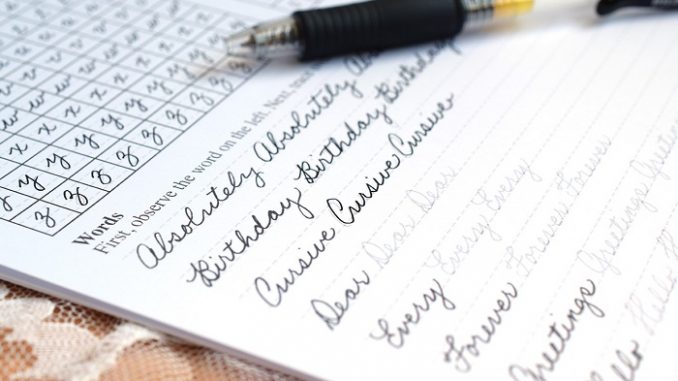 w w w w w w
x x x x x x
y y y y y y
z z z z z z
Words
First, observe the word on the left. Next,
Absolutely Absolutely Abs
Birthday Birthday Birthday
Cursive Cursive Cursive
Dear Dear Dear
Every Every Every
Forever Forever Forever
Greetings Greetings Greetin
ello Hello H